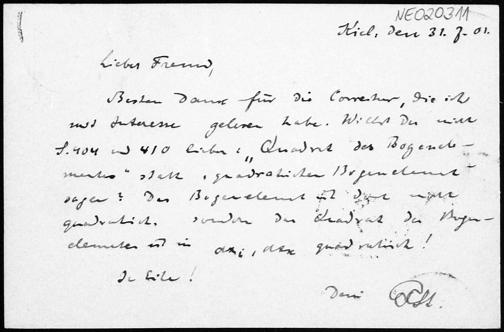 NE020311
Kiel, den 31. 7. 01.
Lieber Freund,
Besten Dank für die Correctur, die ich
mit Interesse gelesen habe. Willst Du nicht
S. 404 und 410 lieber: „Quadrat des Bogenele-
mentes" statt „quadratisches Bogenelement"
sagen? Das Bogenelement ist doch nicht
quadratisch, sondern das Quadrat des Bogen-
elementes ist in dxi, dxk quadratisch!
In Eile!
Dein